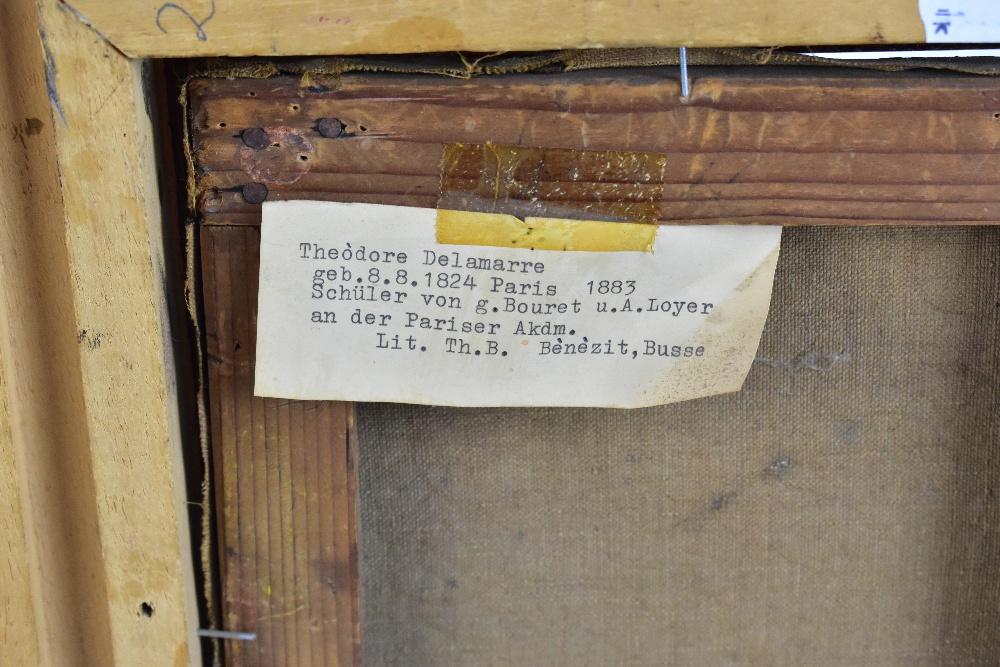 2
Theòdore Delamarre
geb.8.8.1824 Paris 1883
Schüler von g.Bouret u.A.Loyer
an der Pariser Akdm.
Lit. Th.B. Bènèzit,Busse